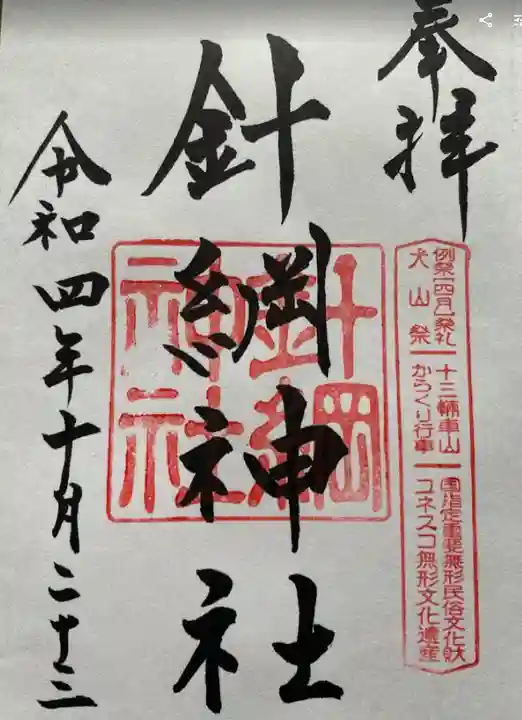 奉拝
例祭[四月]祭礼
犬山祭
十三輛車山
からくり行車
国指定重要無形民俗文化財
ユネスコ無形文化遺産
針綱神社
針綱神社
令和四年十月二十三